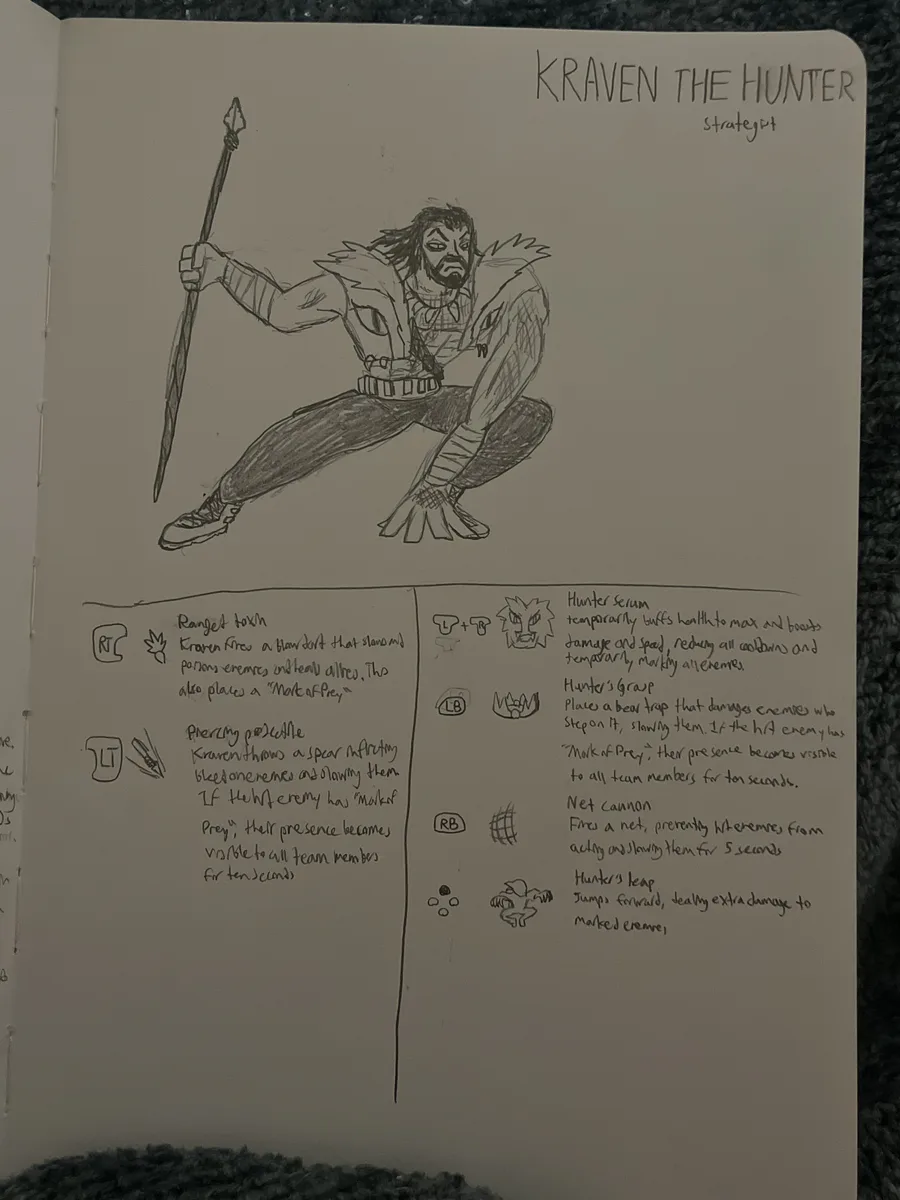 KRAVEN THE HUNTER
Strategist
RT
Ranged toxin
Kraven fires a blow dart that slows and
poisons enemies and heals allies. This
also places a "Mark of Prey"
LT
Piercing projectile
Kraven throws a spear inflicting
bleed on enemies and slowing them
If the hit enemy has "Mark of
Prey", their presence becomes
visible to all team members
for ten seconds
L + R
Hunter serum
temporarily buffs health to max and boosts
damage and speed, reducing all cooldowns and
temporarily marking all enemies
LB
Hunter's Grasp
Places a bear trap that damages enemies who
step on it, slowing them. If the hit enemy has
"Mark of Prey", their presence becomes visible
to all team members for ten seconds.
RB
Net cannon
Fires a net, preventing hit enemies from
acting and slowing them for 5 seconds
Hunter's leap
Jumps forward, dealing extra damage to
marked enemies